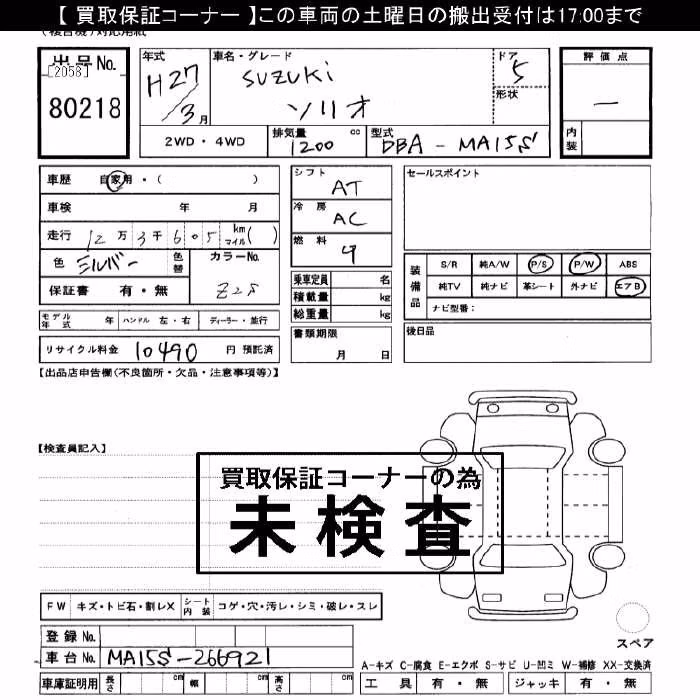 【 買取保証コーナー 】この車両の土曜日の搬出受付は17:00まで
出品No.
[2058]
80218
年式 H27/3月
車名・グレード SUZUKi ソリオ
ドア 5
形状
評価点 —
内装
2WD・4WD
排気量 1200 cc
型式 DBA-MA15S
車歴 自家用・( )
車検 年 月
走行 12万3千605 km マイル( )
色 シルバー 色替 カラーNo. Z2S
保証書 有・無
モデル年式 年 ハンドル 左・右 ディーラー・並行
リサイクル料金 10490 円 預託済
シフト AT
冷房 AC
燃料
乗車定員 名
積載量 kg
総重量 kg
書類期限
月 日
セールスポイント
装備品
S/R 純A/W P/S P/W ABS
純TV 純ナビ 革シート 外ナビ エアB
ナビ型番：
後日品
【出品店申告欄(不良箇所・欠品・注意事項等)】
【検査員記入】
買取保証コーナーの為
未検査
FW キズ・トビ石・割レX シート内装 コゲ・穴・汚レ・シミ・破レ・スレ
登録No.
車台No. MA15S-266921
車庫証明用 長さ cm 幅 cm 高さ cm
スペア
A-キズ C-腐食 E-エクボ S-サビ U-凹ミ W-補修 XX-交換済
工具 有・無 ジャッキ 有・無